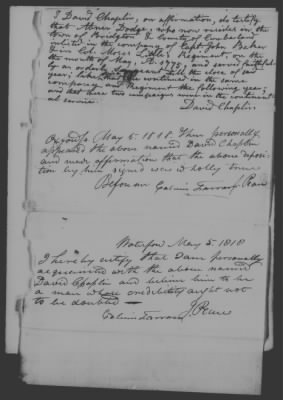 I David Chaplin, on affirmation, do testify
that Abner Dodge, who now resides in the
town of Bridgton & County of Cumberland
inlisted in the company of Capt John Baker
in Col. Moses Little's Regiment, on the
the month of May, AD 1775, and served faithfully
till the close of said
year; that he continued in the
company and Regiment the following year;
and that these two campaigns were in the continental
service.
David Chaplin
Oxford ss May 5. 1818 Then personally
appeared the above named David Chaplin
and made affirmation that the above deposi-
tion by him signed was wholly true
Before me Calvin Farrar J. Peace
Waterford May 5 1818
I hereby certify that I am personally
acquainted with the above named
David Chaplin and believe him to be
a man whose credibility ought not
to be doubted —
Calvin Farrar J. Peace